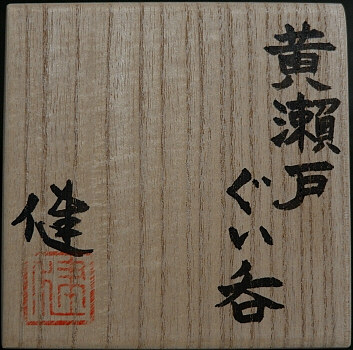 黄瀬戸
ぐい呑
健